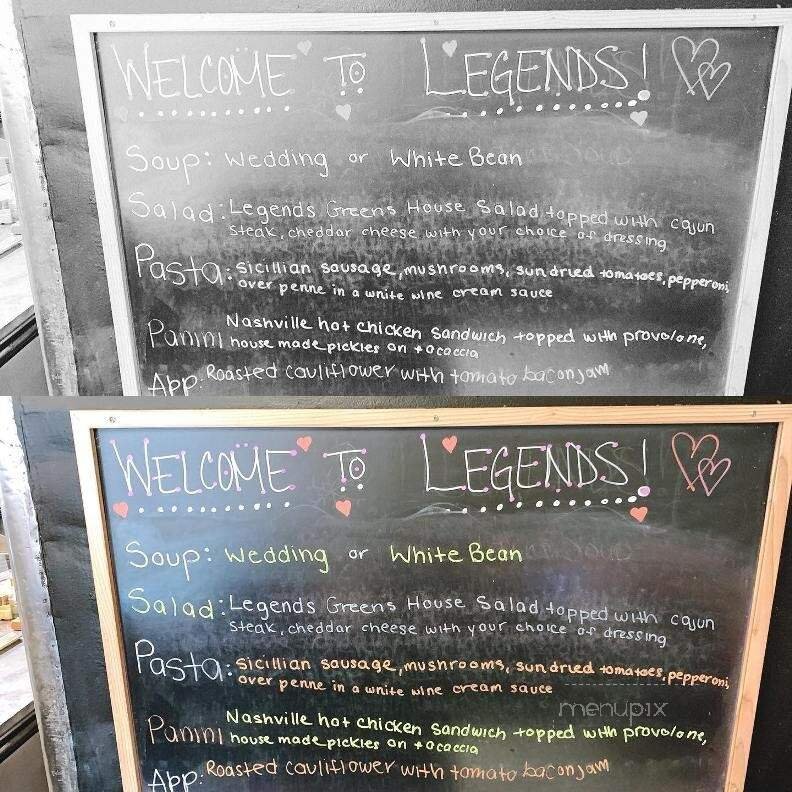 WELCOME TO LEGENDS!
Soup: Wedding or White Bean
Salad: Legends Greens House Salad topped with cajun
Steak, cheddar cheese with your choice of dressing
Pasta: Sicillian sausage, mushrooms, sundried tomatoes, pepperoni,
over penne in a white wine cream sauce
Panini Nashville hot chicken sandwich topped with provolone,
house made pickles on focaccia
App: Roasted cauliflower with tomato bacon jam
WELCOME TO LEGENDS!
Soup: Wedding or White Bean
Salad: Legends Greens House Salad topped with cajun
Steak, cheddar cheese with your choice of dressing
Pasta: Sicillian sausage, mushrooms, sundried tomatoes, pepperoni,
over penne in a white wine cream sauce
menupix
Panini Nashville hot chicken sandwich topped with provolone,
house made pickles on focaccia
App: Roasted cauliflower with tomato bacon jam